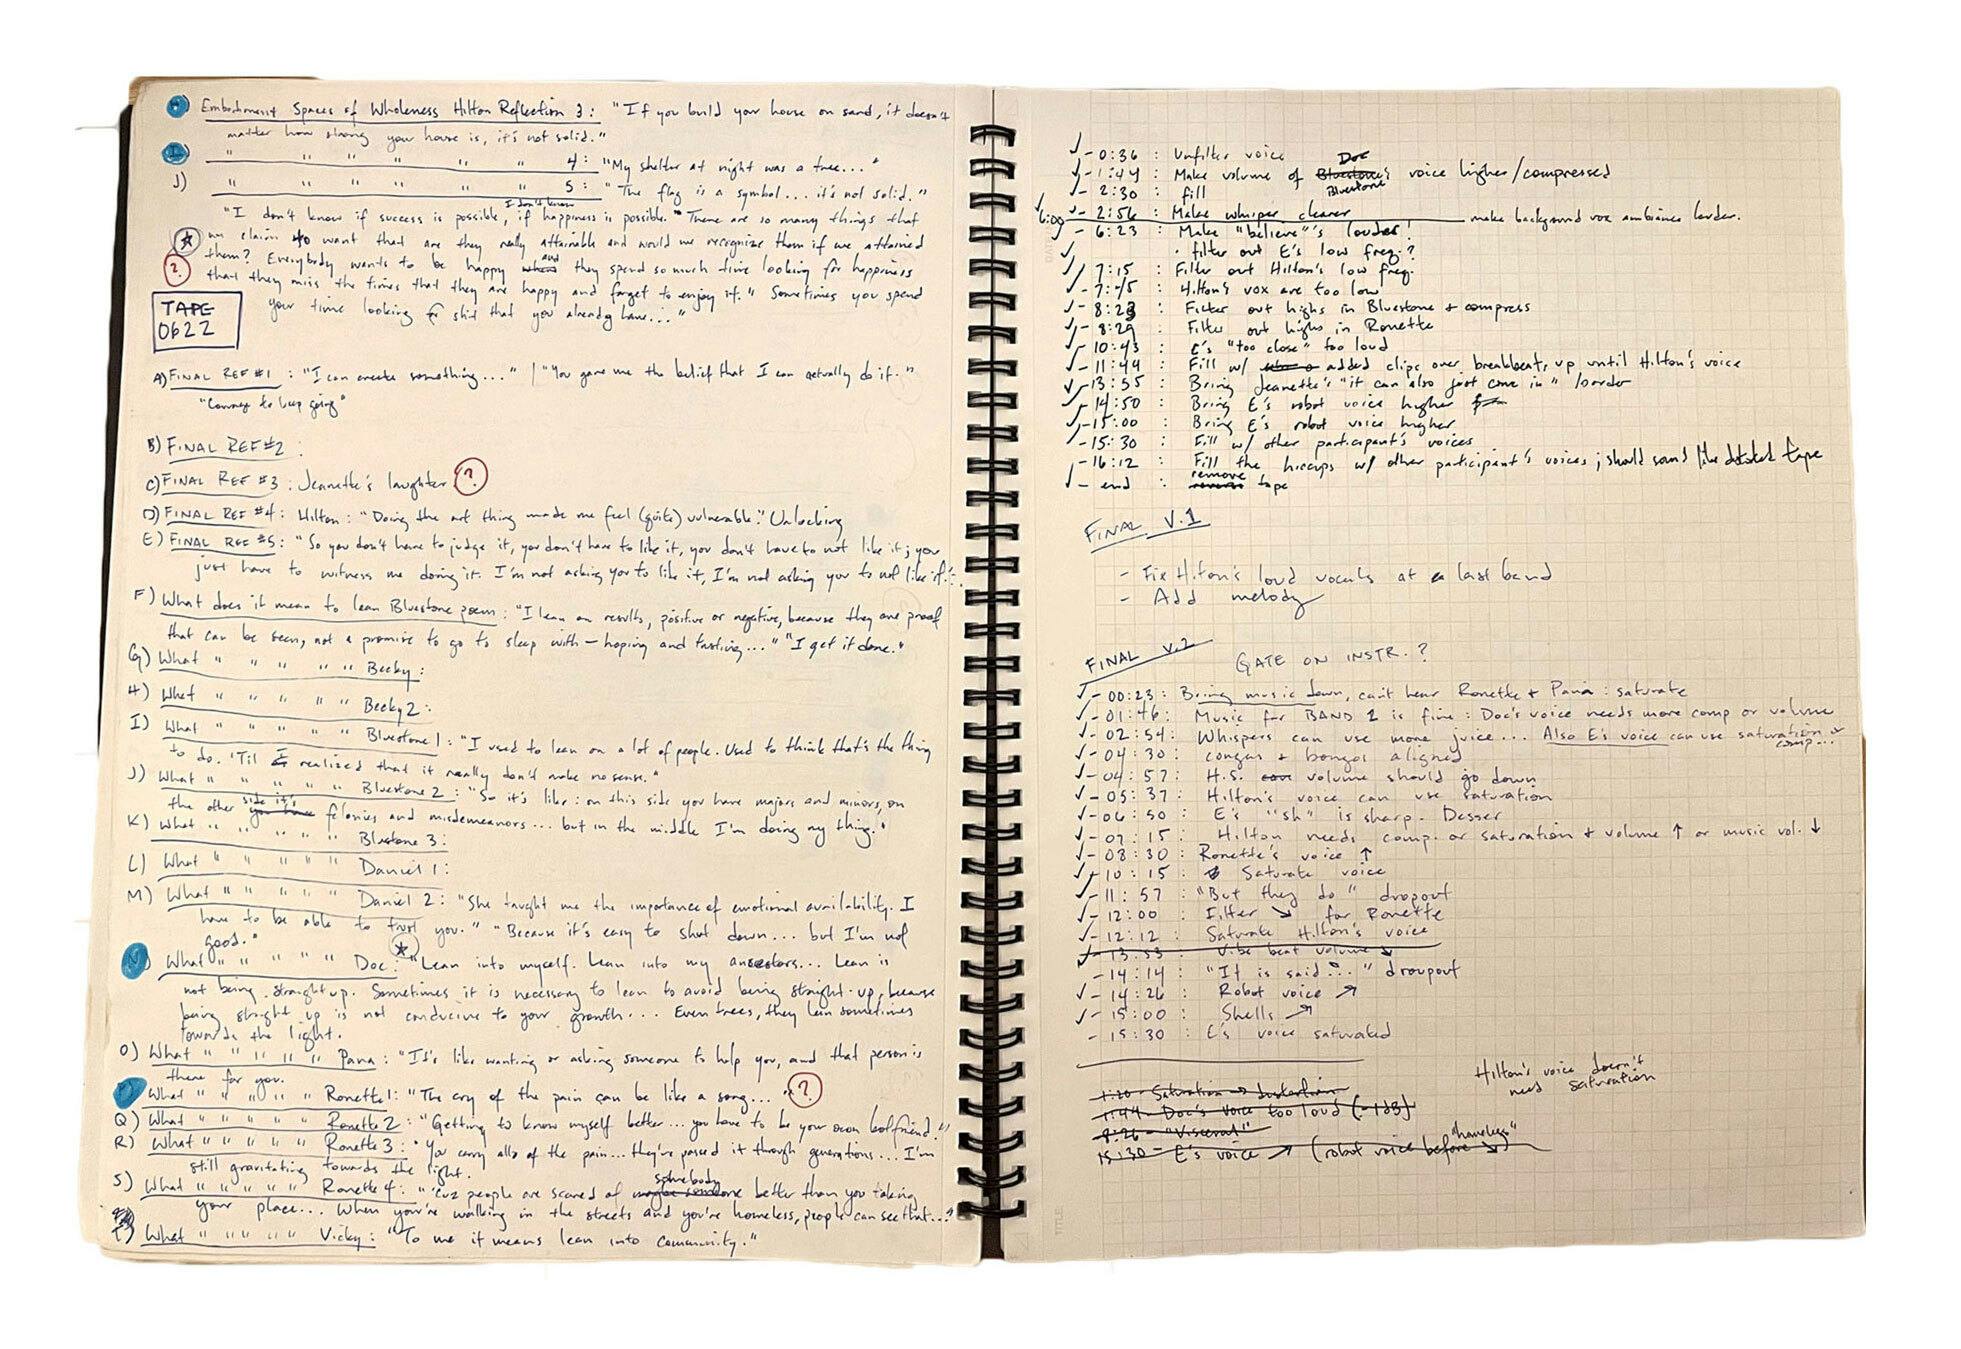 Embodiment Spaces of Wholeness Hilton Reflection 3: "If you build your house on sand, it doesn't
matter how strong your house is, it's not solid."
" " " " " " 4: "My shelter at night was a tree..."
J) " " " " " " 5: "The flag is a symbol... it's not solid."
I don't know
"I don't know if success is possible, if happiness is possible." "There are so many things that
we claim to want that are they really attainable and would we recognize them if we attained
them? Everybody wants to be happy and they spend so much time looking for happiness
that they miss the times that they are happy and forget to enjoy it." Sometimes you spend
your time looking for shit that you already have..."
?
TAPE
0622
A) FINAL REF #1: "I can create something..." | "You gave me the belief that I can actually do it."
"Courage to keep going"
B) FINAL REF #2:
C) FINAL REF #3: Jeanette's laughter ?
D) FINAL REF #4: Hilton: "Doing the art thing made me feel (quite) vulnerable." Unlocking
E) FINAL REF #5: "So you don't have to judge it, you don't have to like it, you don't have to not like it; you
just have to witness me doing it. I'm not asking you to like it, I'm not asking you to not like it."
F) What does it mean to lean Bluestone poem: "I lean on results, positive or negative, because they are proof
that can be seen, not a promise to go to sleep with - hoping and trusting..." "I get it done."
G) What " " " " " Becky:
H) What " " " " " Becky 2:
I) What " " " " " Bluestone 1: "I used to lean on a lot of people. Used to think that's the thing
to do. 'Til I realized that it really don't make no sense."
J) What " " " " " Bluestone 2: "So it's like: on this side you have majors and minors, on
the other side it's felonies and misdemeanors... but in the middle I'm doing my thing."
K) What " " " " " Bluestone 3:
L) What " " " " " Daniel 1:
M) What " " " " " Daniel 2: "She taught me the importance of emotional availability. I
have to be able to trust you." "Because it's easy to shut down... but I'm not
good."
What " " " " " Doc: "Lean into myself. Lean into my ancestors... Lean is
not being straight up. Sometimes it is necessary to lean to avoid being straight-up, because
being straight up is not conducive to your growth... Even trees, they lean sometimes
towards the light.
O) What " " " " " Pana: "It's like wanting or asking someone to help you, and that person is
there for you.
What " " " " " Ronette 1: "The cry of the pain can be like a song..." ?
Q) What " " " " " Ronette 2: "Getting to know myself better... you have to be your own boyfriend."
R) What " " " " " Ronette 3: "You carry all of the pain... they've passed it through generations... I'm
still gravitating towards the light.
S) What " " " " " Ronette 4: "'Cuz people are scared of somebody better than you taking
your place... When you're walking in the streets and you're homeless, people can see that..."
What " " " " " Vicky: "To me it means lean into community."
- 0:36 : Unfilter voice
- 1:44 : Make volume of Doc Bluestone's voice higher/compressed
Bluestone
- 2:30 : fill
6:00 - 2:56 : Make whisper clearer make background vox ambiance louder.
- 6:23 : Make "believe"'s louder!
· filter out E's low freq.?
- 7:15 : Filter out Hilton's low freq.
- 7:45 : Hilton's vox are too low
- 8:23 : Filter out highs in Bluestone + compress
- 8:29 : Filter out highs in Ronette
- 10:43 : E's "too close" too loud
- 11:49 : Fill w/ added clips over breakbeat, up until Hilton's voice
- 13:55 : Bring Jeanette's "it can also just come in" louder
- 14:50 : Bring E's robot voice higher
- 15:00 : Bring E's robot voice higher
- 15:30 : Fill w/ other participant's voices
- 16:12 : Fill the hiccups w/ other participant's voices; should sound like tape
- end : remove reverse tape
FINAL V.1
- Fix Hilton's loud vocals at last band
- Add melody
FINAL V.2 GATE ON INSTR.?
- 00:23 : Bring music down, can't hear Ronette + Pana : saturate
- 01:46 : Music for BAND 2 is fine : Doc's voice needs more comp or volume
- 02:54 : Whispers can use more juice... Also E's voice can use saturation or
comp...
- 04:30 : congas & bongos aligned
- 04:57 : H.S. volume should go down
- 05:37 : Hilton's voice can use saturation
- 06:50 : E's "sh" is sharp. Desser
- 07:15 : Hilton needs comp. or saturation + volume ↑ or music vol. ↓
- 08:30 : Ronette's voice ↑
- 10:15 : Saturate voice
- 11:57 : "But they do" dropout
- 12:00 : Filter ↘ for Ronette
- 12:12 : Saturate Hilton's voice
- 13:53 : Vibe beat volume ↘
- 14:14 : "It is said..." dropout
- 14:26 : Robot voice ↗
- 15:00 : Shells ↗
- 15:30 : E's voice saturated
Hilton's voice doesn't
need saturation
1:20 - Saturation → distortion
1:44 - Doc's voice too loud (-1dB)
8:26 - "Visceral"
15:30 - E's voice ↗ (robot voice before "homeless" ↘)
TITLE